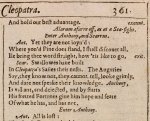 Cleopatra. 361
And hold our best advantage. exeunt.
Alarum afarre off, as at a Sea-fight.
Enter Antony, and Scarrus.
Ant. Yet they are not ioyn'd:
Where yon'd Pine does stand, I shall discouer all.
Ile bring thee word straight, how 'tis like to go. exit.
Scar. Swallowes haue built
In Cleopatra's Sailes their nests. The Auguries
Say, they know not, they cannot tell, looke grimly,
And dare not speake their knowledge. Antony,
Is valiant, and deiected, and by starts
His fretted Fortunes giue him hope and feare
Of what he has, and has not.
Enter Antony.